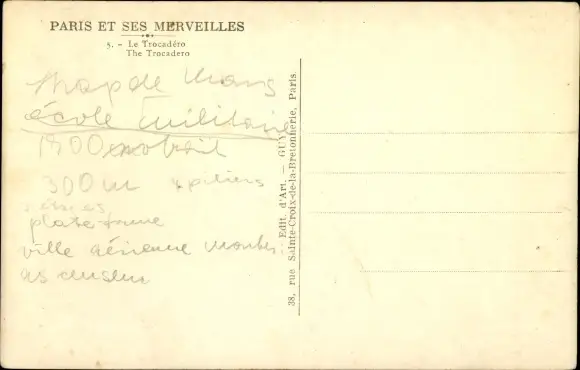 PARIS ET SES MERVEILLES
5. - Le Trocadéro
The Trocadero
de Mars
école militaire
1900
300 m piliers
plate-forme
ville aérienne
ascenseur
Edit. d'Art. — GUY
38, rue Sainte-Croix-de-la-Bretonnerie, Paris